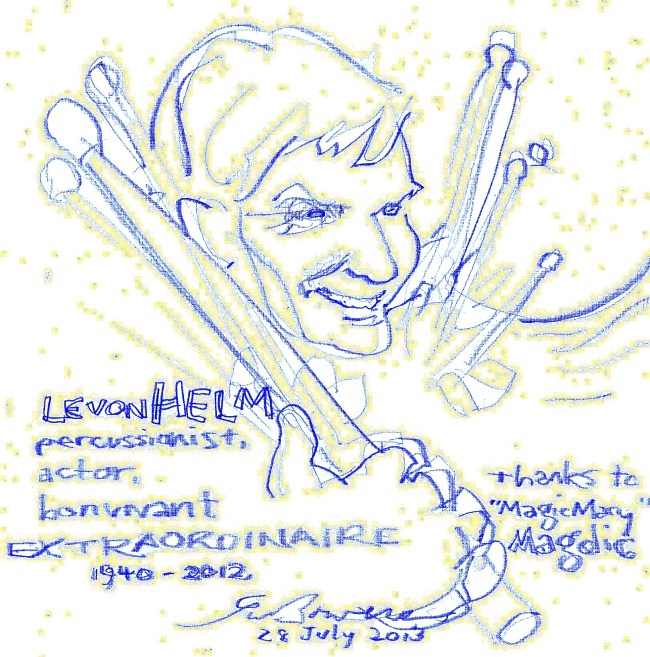 LEVON HELM
percussionist,
actor,
bonvivant
EXTRAORDINAIRE
1940 - 2012
thanks to
"MagicMary"
Magdic
28 July 2013